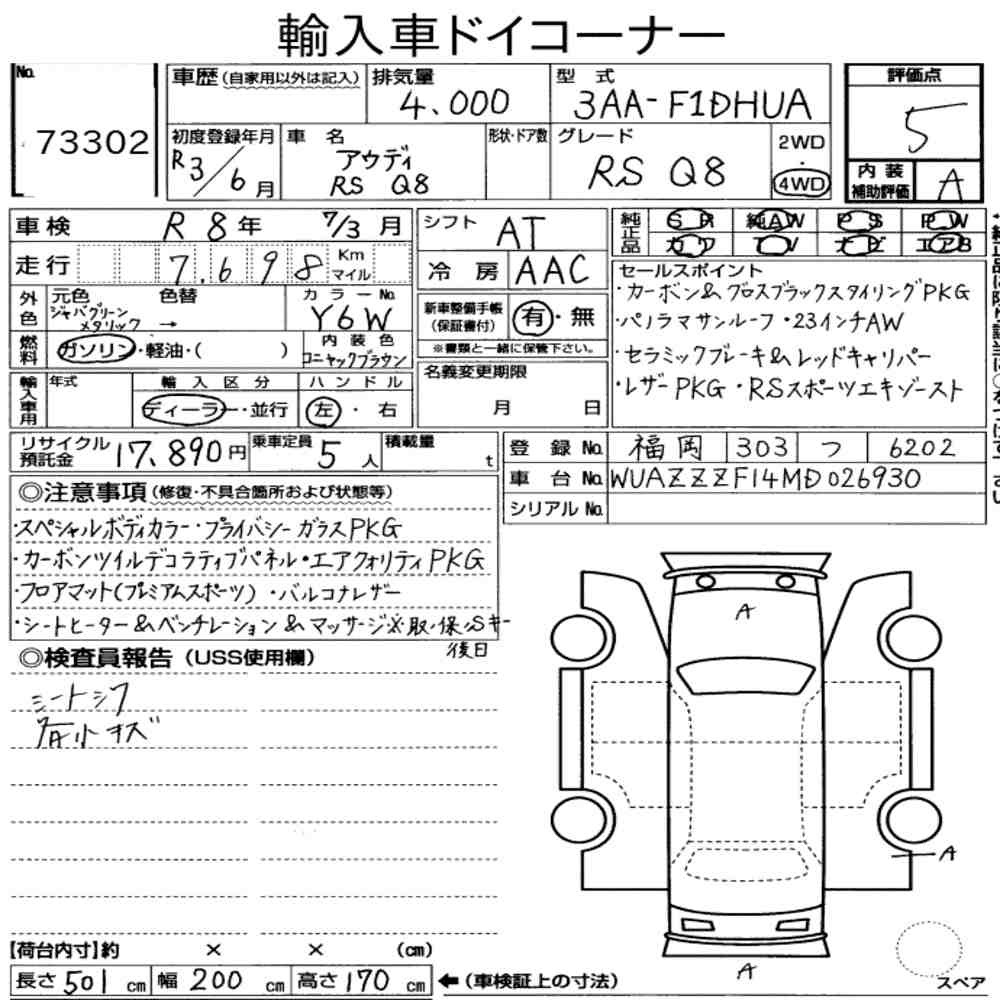 輸入車ドイコーナー
No. 73302
車歴(自家用以外は記入) 排気量 4.000 型式 3AA-F1DHUA 評価点 5
初度登録年月 R3/6月 車名 アウディ RS Q8 形状・ドア数 グレード RS Q8 2WD・4WD 内装補助評価 A
車検 R8年 7/3月 シフト AT 純正品 SR 純AW PS PW
走行 7.698 Km マイル 冷房 AAC カワ TV ナビ エアB
外色 元色 ジャバグリーンメタリック → 色替 カラーNo. Y6W 新車整備手帳(保証書付) 有・無
※書類と一緒に保管下さい。
燃料 ガソリン・軽油・( ) 内装色 コニャックブラウン
セールスポイント
・カーボン& グロスブラックスタイリングPKG
・パノラマサンルーフ・23インチAW
・セラミックブレーキ& レッドキャリパー
・レザーPKG・RSスポーツエキゾースト
輸入車用 年式 輸入区分 ディーラー・並行 ハンドル 左・右 名義変更期限 月 日
リサイクル預託金 17,890円 乗車定員 5人 積載量 t 登録No. 福岡 303 つ 6202
車台No. WUAZZZF14MD026930
シリアルNo.
◎注意事項(修復・不具合箇所および状態等)
・スペシャルボディカラー・プライバシーガラスPKG
・カーボンツイルデコラティブパネル・エアクォリティPKG
・フロアマット(プレミアムスポーツ)・バルコナレザー
・シートヒーター&ベンチレーション&マッサージ※取・保・Sキー
後日
◎検査員報告(USS使用欄)
シートシワ
有小キズ
A
A
A
スペア
【荷台内寸】約 × × (cm)
長さ 501 cm 幅 200 cm 高さ 170 cm ←(車検証上の寸法)